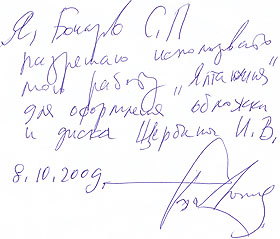 Я, Бочаров С.П
разрешаю использовать
мою работу „Ялтаиния"
для оформления обложки
и диска Щербины И.В.
8.10.2009.